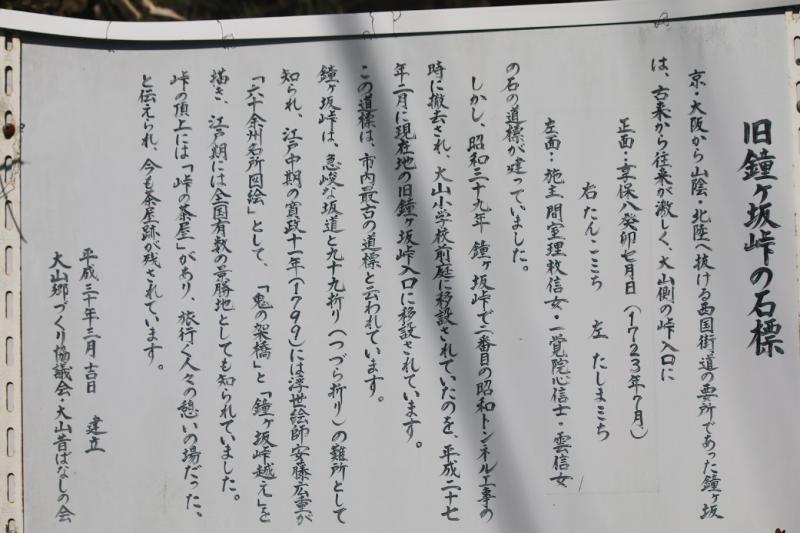 旧鐘ヶ坂峠の石標
京・大阪から山陰・北陸へ抜ける西国街道の要所であった鐘ヶ坂
は、古来から往来が激しく、大山側の峠入口に
正面・享保八癸卯七月日(1723年7月)
右たんごみち 左 たじまみち
左面・施主 間室理教信女・一覚院心信士・雲信女
の石の道標が建っていました。
しかし、昭和三十九年 鐘ヶ坂峠で二番目の昭和トンネル工事の
時に撤去され、大山小学校前庭に移設されていたのを、平成二十七
年二月に現在地の旧鐘ヶ坂峠入口に移設されています。
この道標は、市内最古の道標と云われています。
鐘ヶ坂峠は、急峻な坂道と九十九折り(つづら折り)の難所として
知られ、江戸中期の寛政十一年(1799)には浮世絵師安藤広重が
「六十余州名所図絵」として、「鬼の架橋」と「鐘ヶ坂峠越え」を
描き、江戸期には全国有数の景勝地としても知られていました。
峠の頂上には「峠の茶屋」があり、旅行く人々の憩いの場だった、
と伝えられ、今も茶屋跡が残されています。
平成三十年三月吉日 建立
大山郷づくり協議会・大山昔ばなしの会